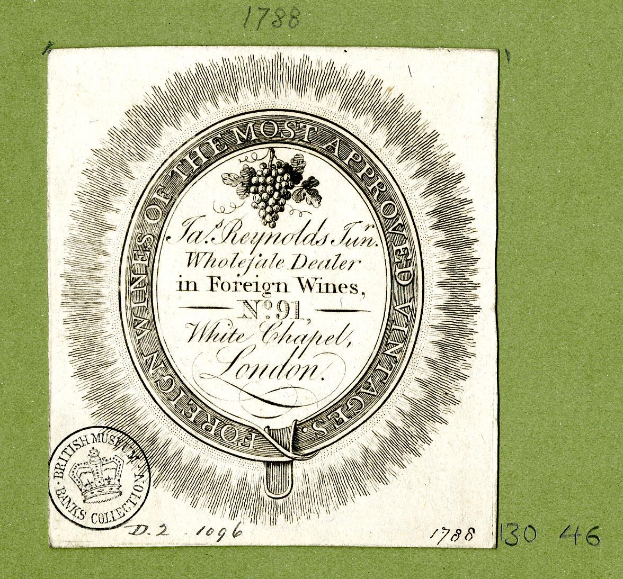 1788
FOREIGN WINES OF THE MOST APPROVED VINTAGES.
Jas. Reynolds Junr.
Wholeſale Dealer
in Foreign Wines,
No. 91,
White Chapel,
London.
BRITISH MUSEUM
BANKS COLLECTION
D.2 . 1096
1788
130 46